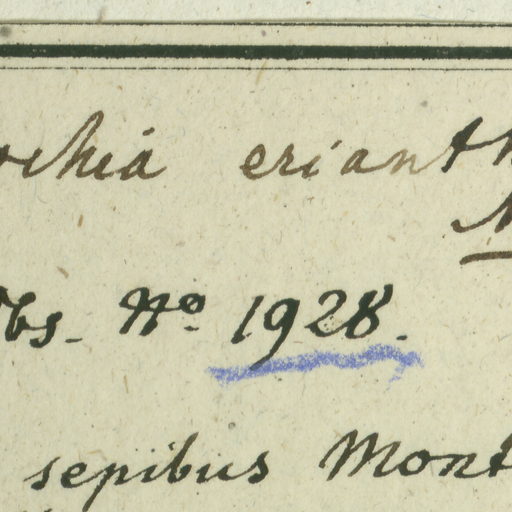 chia erianth
N
bs. No 1928.
sepibus Mont